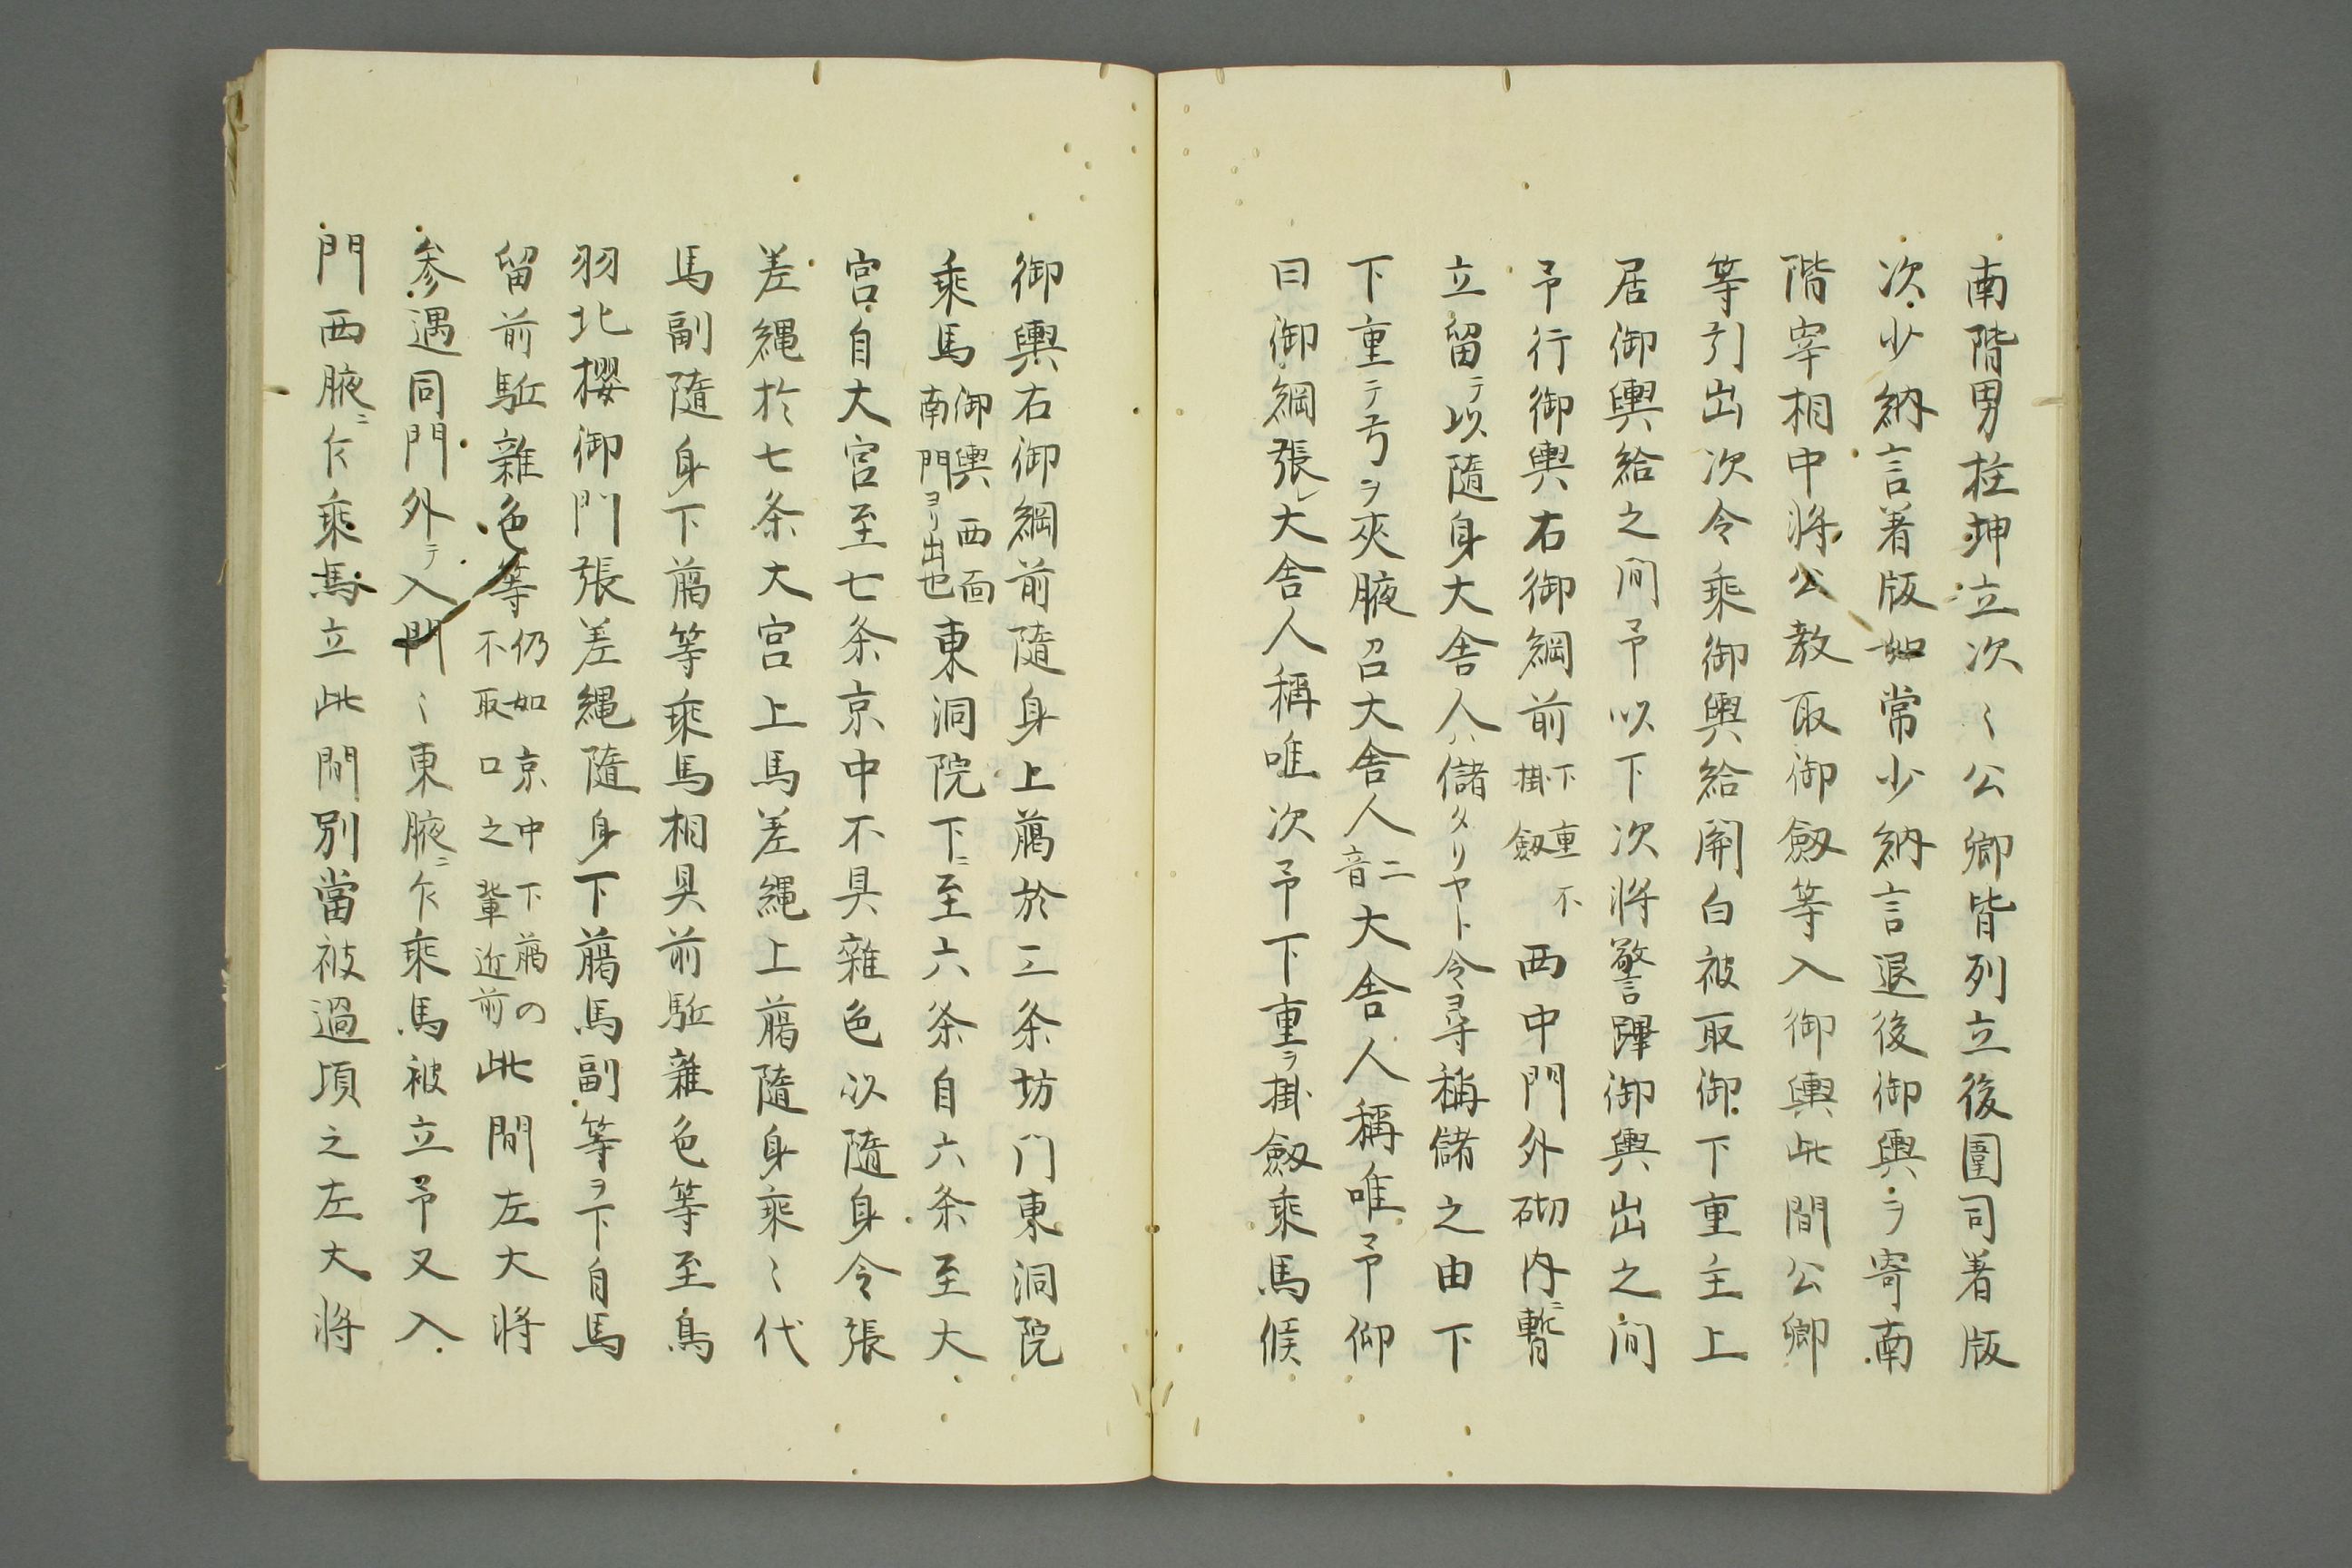 南階男柱坤立次〻公卿皆列立後圍司著版
次少納言著版如常少納言退後御輿ヲ寄南
階宰相中将公教取御劔等入御輿此間公卿
等引出次令乗御輿給関白被取御下重主上
居御輿給之間予以下次将警蹕御輿出之間
予行御輿右御綱前下重不掛劔西中門外砌内ニ暫
立留テ以随身大舎人儲タリヤト令尋稱儲之由下
下重テ弓ヲ夾腋召大舎人二音大舎人稱唯予仰
曰御綱張レ大舎人稱唯次予下重ヲ掛劔乗馬候
御輿右御綱前随身上﨟於三条坊门東洞院
乗馬御輿西面南門ヨリ出也東洞院下ニ至六条自六条至大
宮自大宮至七条京中不具雑色以随身令張
差縄於七条大宮上馬差縄上﨟随身乗〻代
馬副随身下﨟等乗馬相具前駈雑色等至鳥
羽北櫻御門張差縄随身下﨟馬副等ヲ下自馬
留前駈雑色等仍如京中下﨟の不取口之輩近前此間左大将
参遇同門外テ入門〻東腋ニ乍乗馬被立予又入
門西腋ニ乍乗馬立此間別當被過頃之左大将